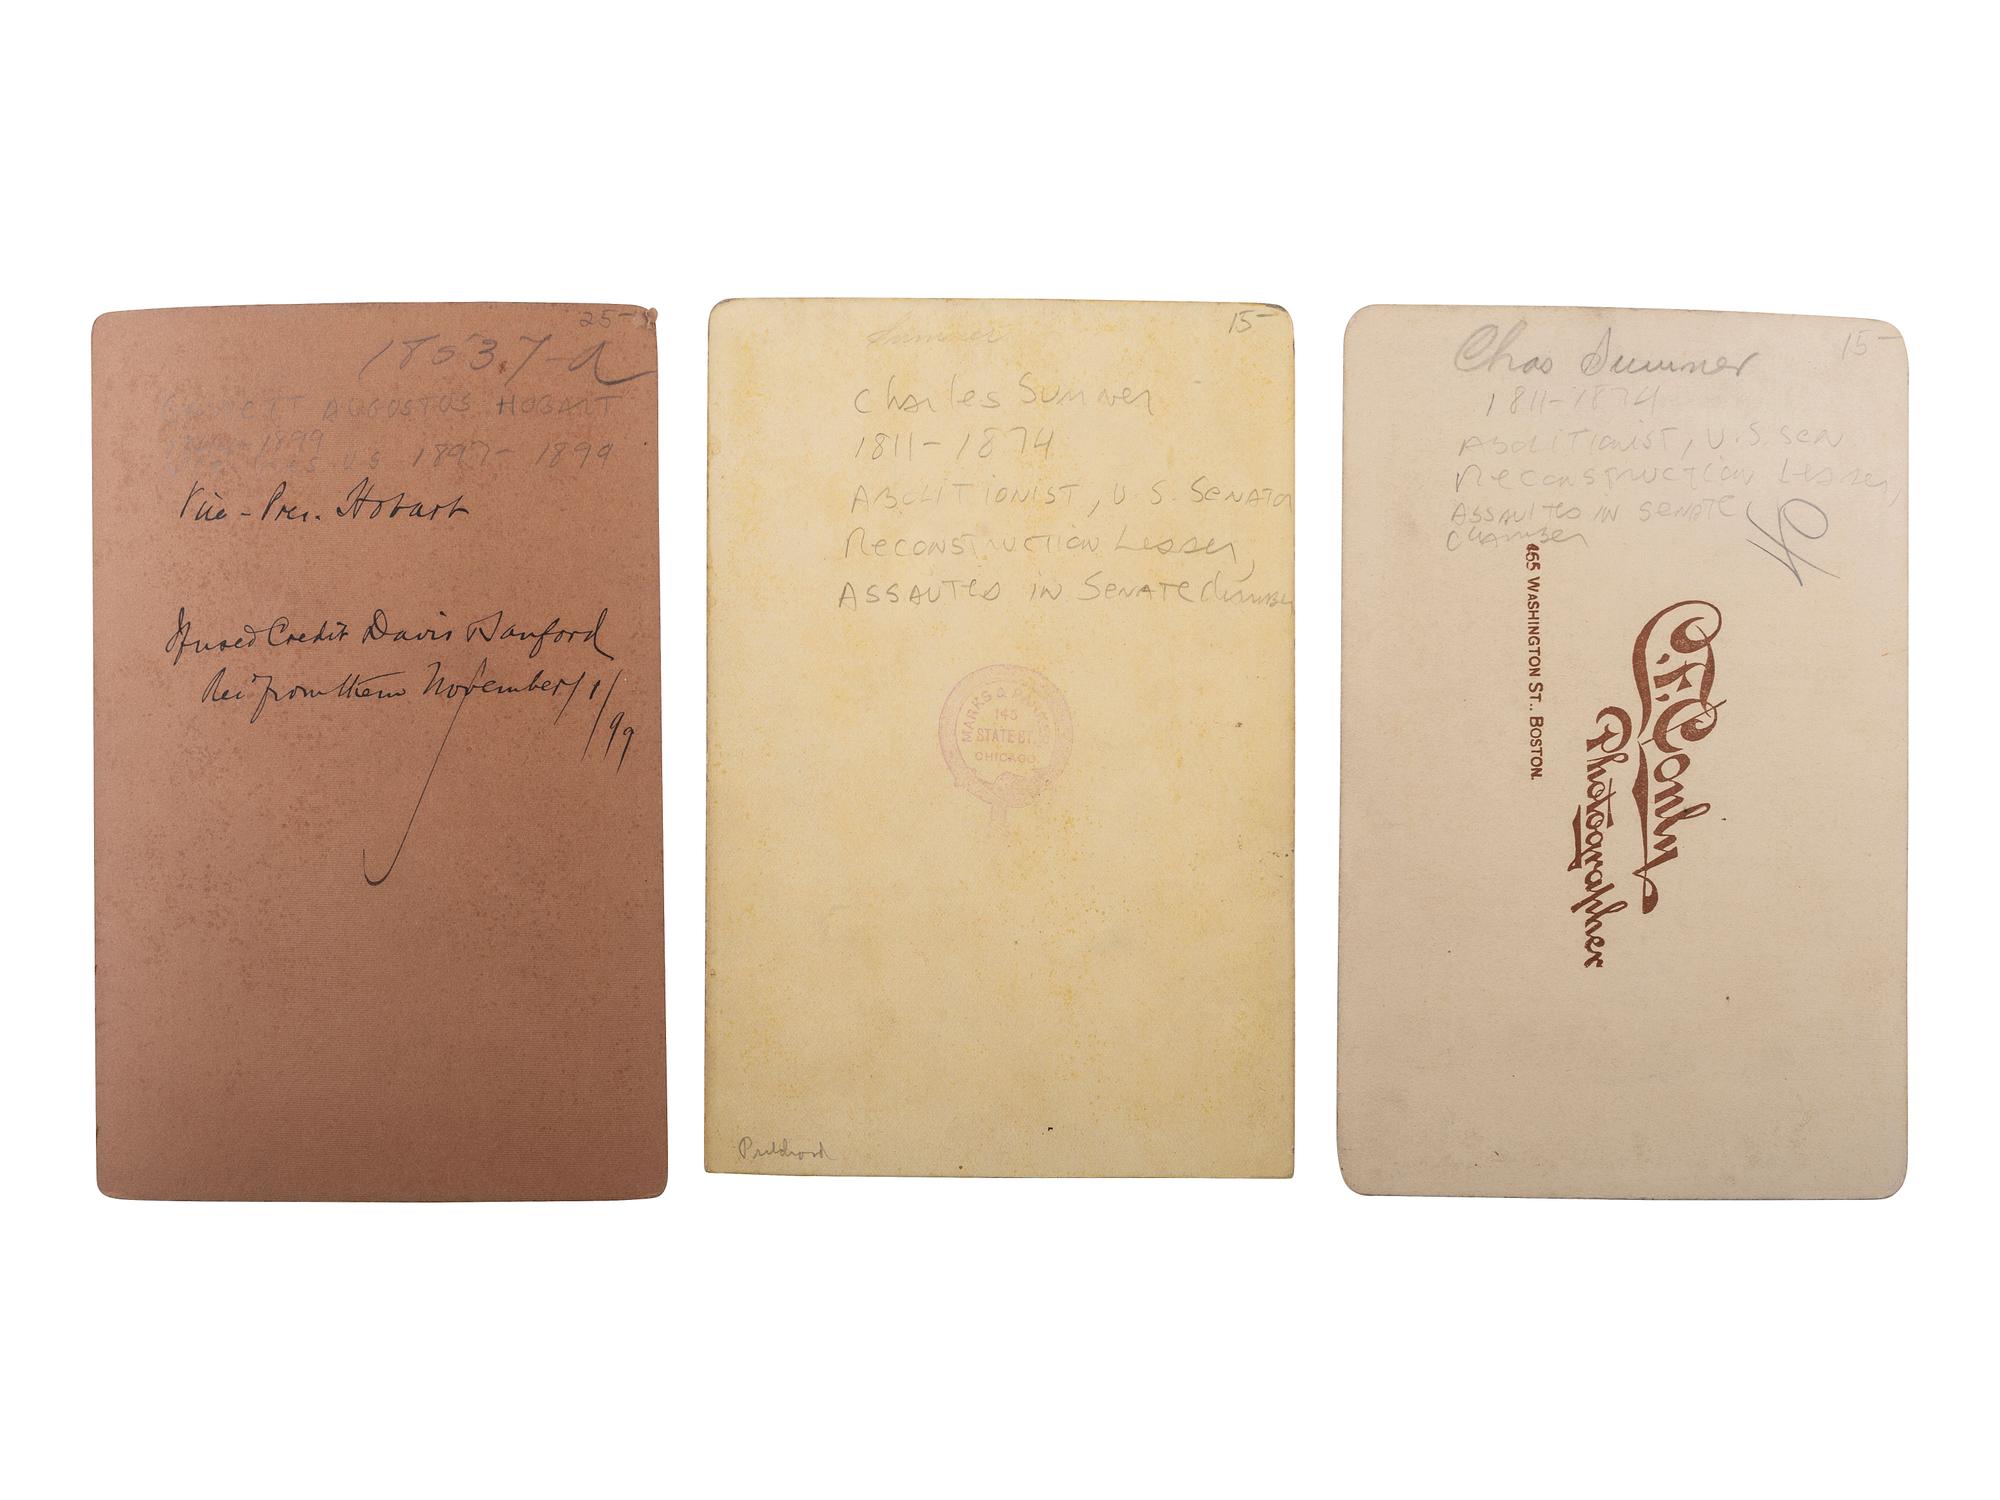 25-
1853.7-a
GARRETT AUGUSTUS HOBART
1844-1899
VICE PRES US 1897-1899
Vice-Pres. Hobart
Credit Davis & Sanford
Rec'd from them November / 1 / 99
15-
Sumner
Charles Sumner
1811-1874
ABOLITIONIST, U.S. SENATOR
RECONSTRUCTION Leader,
ASSAULTED IN SENATE Chamber
145
STATE ST.
CHICAGO
15-
Chas Sumner
1811-1874
ABOLITIONIST, U.S. SEN
Reconstruction Leader,
ASSAULTED IN SENATE
CHAMBER
C.F. Conly
Photographer
465 WASHINGTON ST., BOSTON.